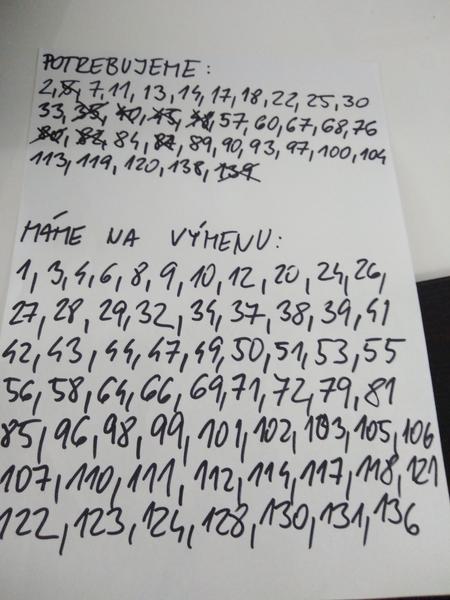 POTREBUJEME:
2, 7, 11, 13, 14, 17, 18, 22, 25, 30
33, 57, 60, 67, 68, 76
84, 89, 90, 93, 97, 100, 104
113, 119, 120, 138, 139
MÁME NA VÝMENU:
1, 3, 4, 6, 8, 9, 10, 12, 20, 24, 26,
27, 28, 29, 32, 34, 37, 38, 39, 41
42, 43, 44, 47, 49, 50, 51, 53, 55
56, 58, 64, 66, 69, 71, 72, 79, 81
85, 96, 98, 99, 101, 102, 103, 105, 106
107, 110, 111, 112, 114, 117, 118, 121
122, 123, 124, 128, 130, 131, 136